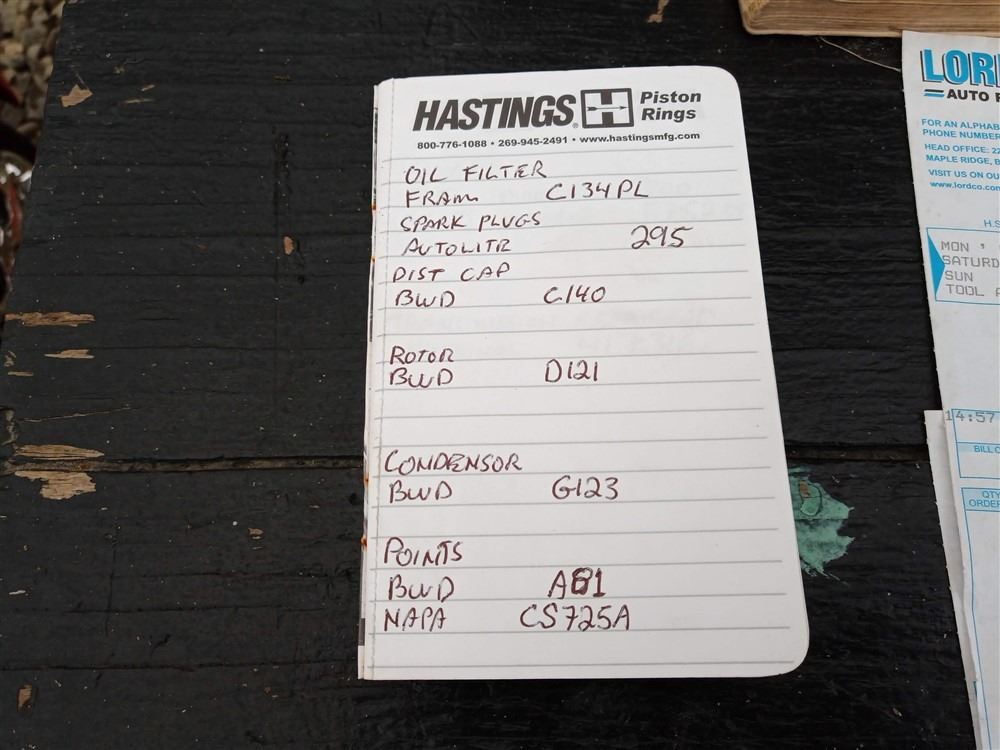 HASTINGS® H Piston Rings
800-776-1088 • 269-945-2491 • www.hastingsmfg.com
OIL FILTER
FRAM C134PL
SPARK PLUGS
AUTOLITE 295
DIST CAP
BWD C140
ROTOR
BWD D121
CONDENSOR
BWD G123
POINTS
BWD
NAPA CS725A
LOR
AUTO
FOR AN ALPHAB
PHONE NUMBER
HEAD OFFICE: 22
MAPLE RIDGE, B
VISIT US ON OU
www.lordco.com
H.S
MON '
SATURD
SUN
TOOL
14:57
BILL
QTY
ORDER